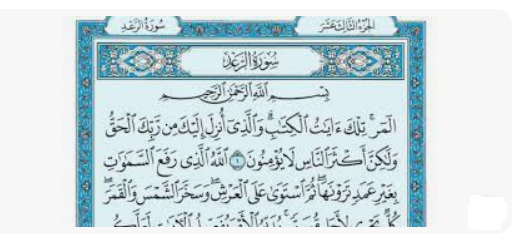 الجزء الثالث عشر
سورة الرعد
سُورَةُ الرَّعْدِ
بِسْمِ اللَّهِ الرَّحْمَٰنِ الرَّحِيمِ
الٓمٓر ۚ تِلْكَ ءَايَٰتُ ٱلْكِتَٰبِ ۗ وَٱلَّذِىٓ أُنزِلَ إِلَيْكَ مِن رَّبِّكَ ٱلْحَقُّ
وَلَٰكِنَّ أَكْثَرَ ٱلنَّاسِ لَا يُؤْمِنُونَ ١ ٱللَّهُ ٱلَّذِى رَفَعَ ٱلسَّمَٰوَٰتِ
بِغَيْرِ عَمَدٍ تَرَوْنَهَا ۖ ثُمَّ ٱسْتَوَىٰ عَلَى ٱلْعَرْشِ ۖ وَسَخَّرَ ٱلشَّمْسَ وَٱلْقَمَرَ ۖ
كُلٌّ يَجْرِى لِأَجَلٍ